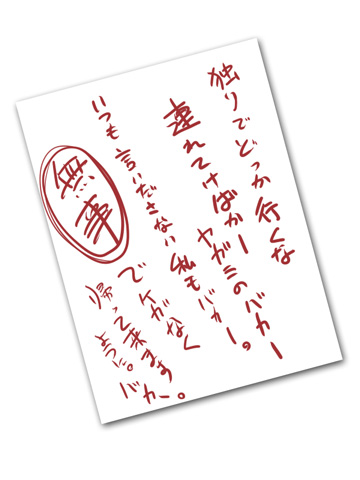 独りでどっか行くな
連れてけばかー ヤガミのバカー
いつも言いださない私もバカー。
無事
でケガなく
帰って来ます
ように。バカ。